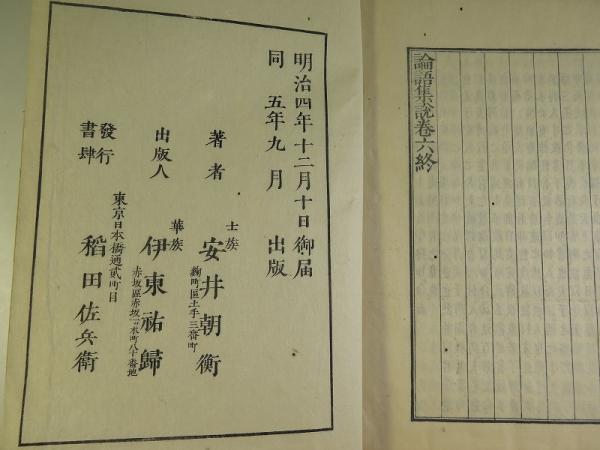 論語集說卷六終
明治四年十二月十日御届
同 五年九月 出版
著者 士族 安井朝衡
麴町區土手三番町
出版人 華族 伊東祐歸
赤坂區赤坂一ツ木町八十番地
東京日本橋通貳町目
發行書肆 稻田佐兵衛